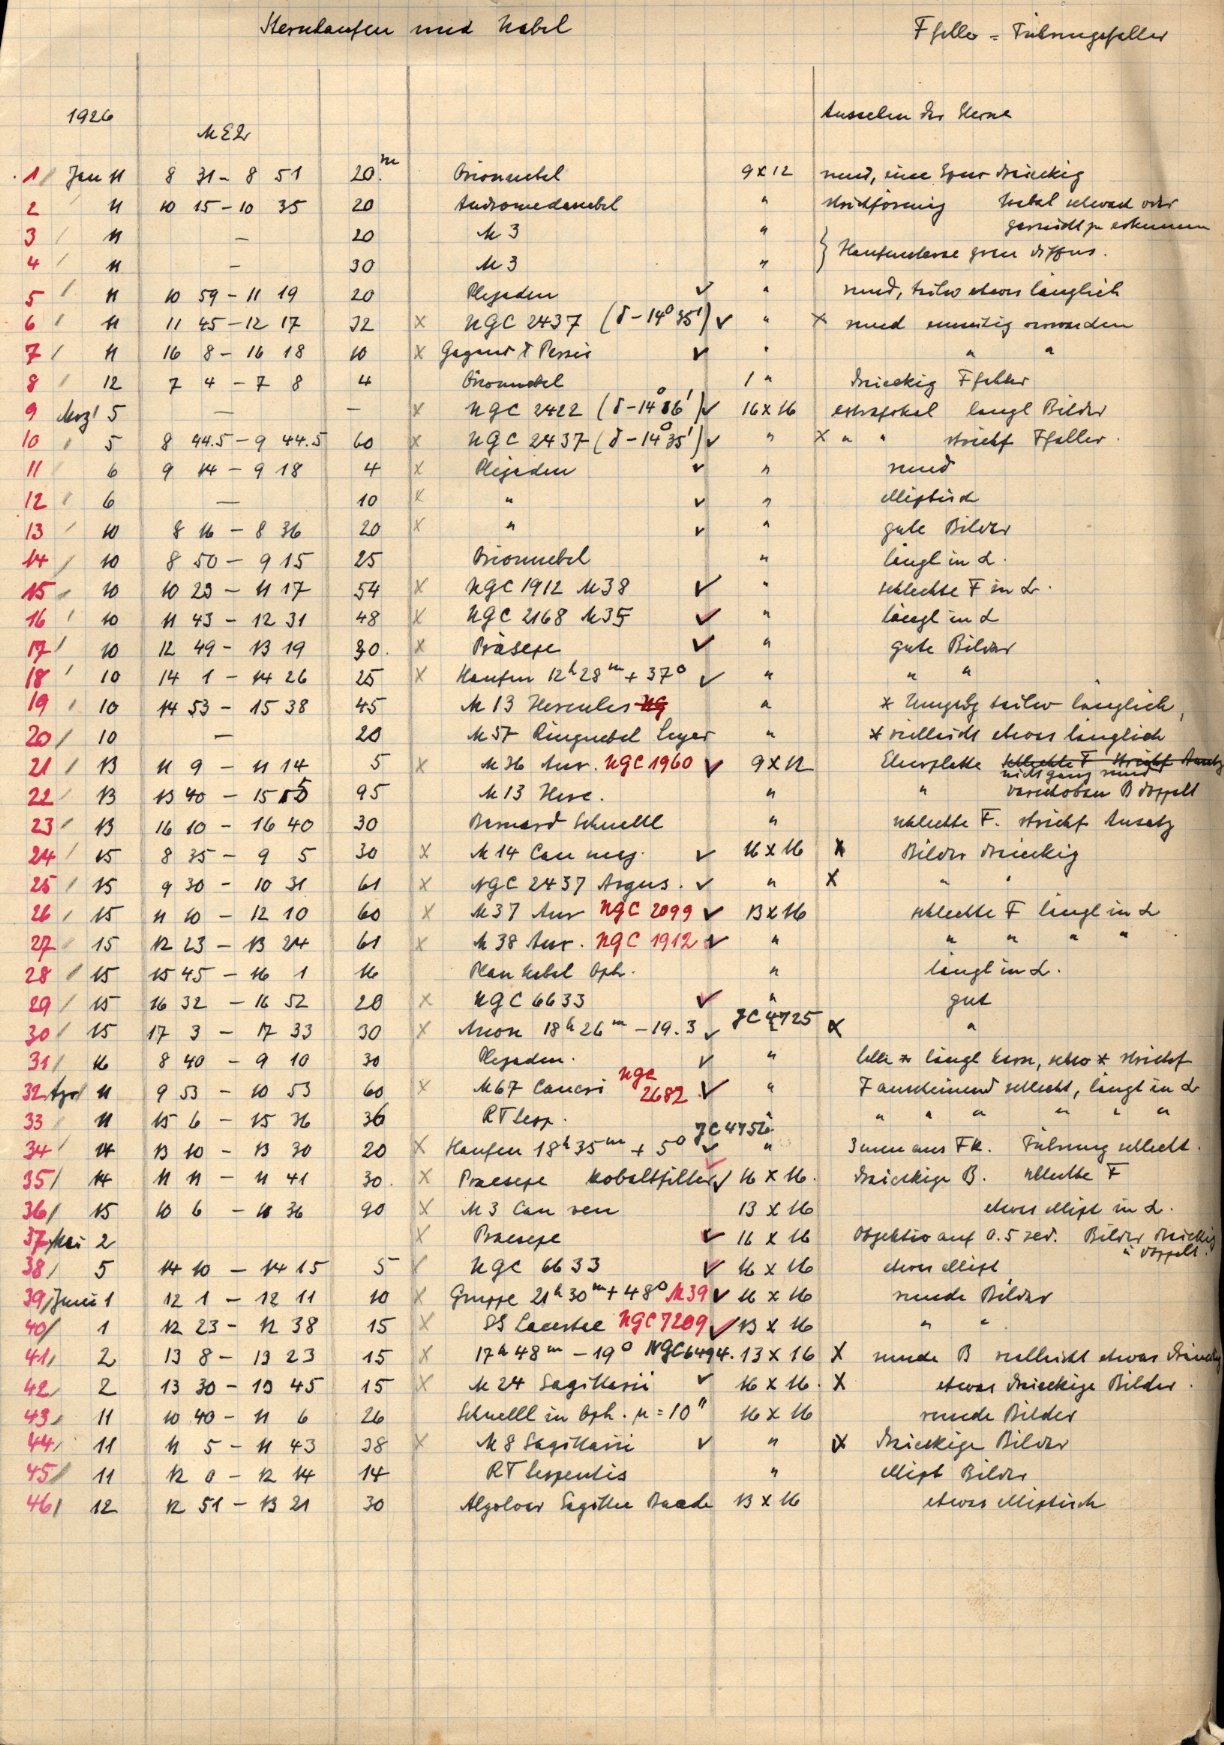 Sternhaufen und Nebel F fehler = Führungsfehler
1926 MEZ Aussehen der Sterne
1 Jan 11 8 31 – 8 51 20m Orionnebel 9 x 12 rund, eine Spur dreieckig
2 11 10 15 – 10 35 20 Andromedanebel " strichförmig Nebel schwach oder
gar nicht zu erkennen
3 11 – 20 M 3 "
4 11 – 30 M 3 " } Haufensterne grau diffus.
5 11 10 59 – 11 19 20 Plejaden ✓ " rund, teilw etwas länglich
6 11 11 45 – 12 17 32 x NGC 2437 (δ – 14° 35') ✓ " x rund einseitig
7 11 16 8 – 16 18 10 x Gegend χ Persei ✓ " " "
8 12 7 4 – 7 8 4 Orionnebel 1 " dreieckig F fehler
9 März 5 — — x NGC 2422 (δ – 14° 16') ✓ 16 x 16 extrafokal längl Bilder
10 5 8 44.5 – 9 44.5 60 x NGC 2437 (δ – 14° 35') ✓ " x " " strichf Ffehler.
11 6 9 14 – 9 18 4 x Plejaden ✓ " rund
12 6 — 10 x " ✓ " elliptisch
13 10 8 16 – 8 36 20 x " ✓ " gute Bilder
14 10 8 50 – 9 15 25 Orionnebel " längl in α.
15 10 10 23 – 11 17 54 x NGC 1912 M38 ✓ " schlechte F in α.
16 10 11 43 – 12 31 48 x NGC 2168 M35 ✓ " längl in α
17 10 12 49 – 13 19 30. x Präsepe ✓ " gute Bilder
18 10 14 1 – 14 26 25 x Haufen 12h 28m + 37° ✓ " " "
19 10 14 53 – 15 38 45 M 13 Hercules NG " * Umgbg teilw länglich,
20 10 — 20 M 57 Ringnebel Leyer " * vielleicht etwas länglich
21 13 11 9 – 11 14 5 x M 36 Aur. NGC 1960 ✓ 9 x 12 schlechte F strichf Ansatz
nicht ganz rund
22 13 13 40 – 15 15 95 M 13 Herc. " " verschoben B doppelt
23 13 16 10 – 16 40 30 Barnard Schnelll " schlechte F. strichf Ansatz
24 15 8 35 – 9 5 30 x M 14 Can maj. ✓ 16 x 16 x Bilder dreieckig
25 15 9 30 – 10 31 61 x NGC 2437 Argus. ✓ " x " "
26 15 11 10 – 12 10 60 x M37 Aur NGC 2099 ✓ 13 x 16 schlechte F längl in α
27 15 12 23 – 13 24 61 x M 38 Aur. NGC 1912 ✓ " " " " "
28 15 15 45 – 16 1 16 Plan Nebel Oph. " längl in α.
29 15 16 32 – 16 52 20 x NGC 6633 ✓ " gut
30 15 17 3 – 17 33 30 x Anon 18h 26m – 19.3 ✓ JC 4725 " x "
31 16 8 40 – 9 10 30 Plejaden. ✓ " helle * längl Kern, schw * strichf
32 Apr 11 9 53 – 10 53 60 x M67 Cancri NGC 2682 ✓ " F anscheinend schlecht, längl in α
33 11 15 6 – 15 36 36 RT Serp. " " " " " " "
34 14 13 10 – 13 30 20 x Haufen 18h 35m + 5° ✓ JC 4756 " 3 mm aus FK. Führung schlecht.
35 14 11 11 – 11 41 30. x Praesepe Kobaltfilter ✓ 16 x 16. dreieckige B. schlechte F
36 15 10 6 – 11 36 90 x M 3 Can ven 13 x 16 etwas ellipt in α.
37 Mai 2 x Praesepe ✓ 16 x 16 Objektiv auf 0.5 red. Bilder dreieckig
u doppelt.
38 5 14 10 – 14 15 5 NGC 6633 ✓ 16 x 16 etwas ellipt
39 Juni 1 12 1 – 12 11 10 x Gruppe 21h 30m + 48° M39 ✓ 16 x 16 runde Bilder
40 1 12 23 – 12 38 15 x SS Lacertae NGC 7209 ✓ 13 x 16 " "
41 2 13 8 – 13 23 15 x 17h 48m – 19° NGC 6494. 13 x 16 x runde B vielleicht etwas dreieckig
42 2 13 30 – 13 45 15 x M 24 Sagittarii ✓ 16 x 16. x etwas dreieckige Bilder.
43 11 10 40 – 11 6 26 Schnelll in Oph. μ = 10" 16 x 16 runde Bilder
44 11 11 5 – 11 43 38 x M 8 Sagittarii ✓ " x dreieckige Bilder
45 11 12 0 – 12 14 14 RT Serpentis " ellipt Bilder
46 12 12 51 – 13 21 30 Algolver Sagittae Baade 13 x 16 etwas elliptisch